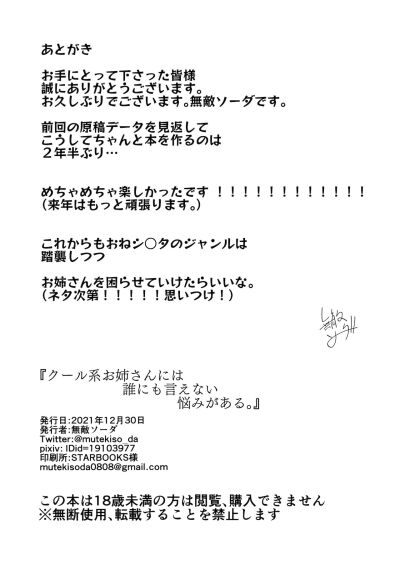 あとがき
お手にとって下さった皆様
誠にありがとうございます。
お久しぶりでございます。無敵ソーダです。
前回の原稿データを見返して
こうしてちゃんと本を作るのは
２年半ぶり…
めちゃめちゃ楽しかったです！！！！！！！！！！！！
（来年はもっと頑張ります。）
これからもおねシ〇タのジャンルは
踏襲しつつ
お姉さんを困らせていけたらいいな。
（ネタ次第！！！！！思いつけ！）
『クール系お姉さんには
誰にも言えない
悩みがある。』
発行日：2021年12月30日
発行者：無敵ソーダ
Twitter:@mutekiso_da
pixiv: IDid=19103977
印刷所：STARBOOKS様
mutekisoda0808@gmail.com
この本は18歳未満の方は閲覧、購入できません
※無断使用、転載することを禁止します